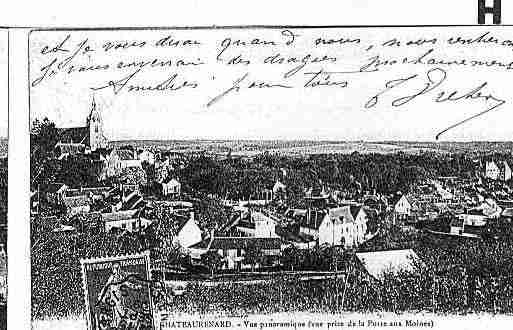 H
et je vous dirai quand nous, nous
je vous enverrai des dragées prochainement
Amitiés pour tous
CHATEAURENARD. - Vue panoramique (vue prise de la Porte aux Moines)